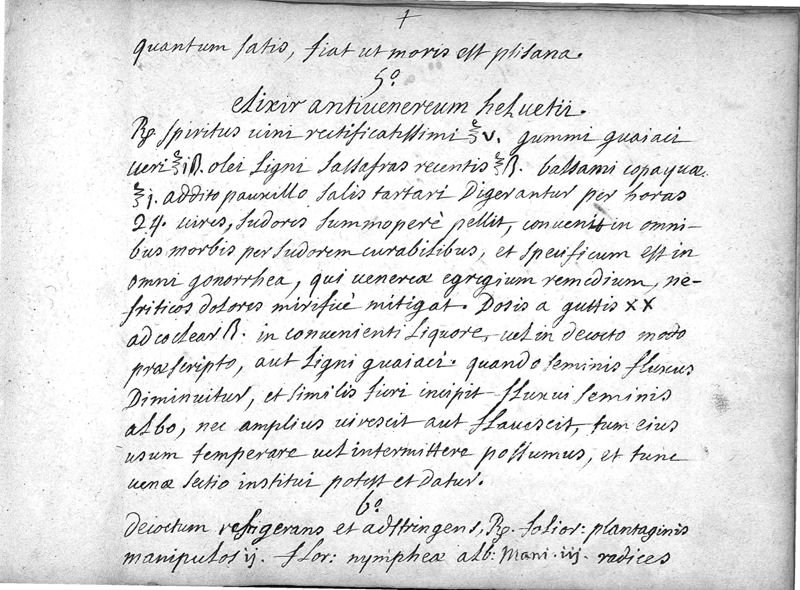 +
quantum satis, fiat ut moris est ptisana.
5º
elixir antivenereum helvetii.
℞ spiritus vini rectificatissimi ℥v. gummi guaiaci
veri ℥iß. olei Ligni sassafras recentis ℥ß. balsami copayvæ
℥j. addito pauxillo salis tartari Digerantur per horas
24. vires, sudores summoperè pellit, convenit in omni-
bus morbis per sudorem curabilibus, et specificum est in
omni gonorrhea, qui venereæ egregium remedium, ne-
friticos dolores mirificè mitigat. Dosis a guttis XX
ad coclear ß. in convenienti Liquore, vel in decocto modo
præscripto, aut Ligni guaiaci. quando seminis fluxus
Diminuitur, et similis fieri incipit fluxui seminis
albo, nec amplius virescit aut flavescit, tum eius
usum temperare vel intermittere possumus, et tunc
venæ sectio institui potest et datur.
6º
decoctum refrigerans et adstringens, ℞. folior: plantaginis
manipulos ij. flor: nympheæ alb: Mani. iij. radices